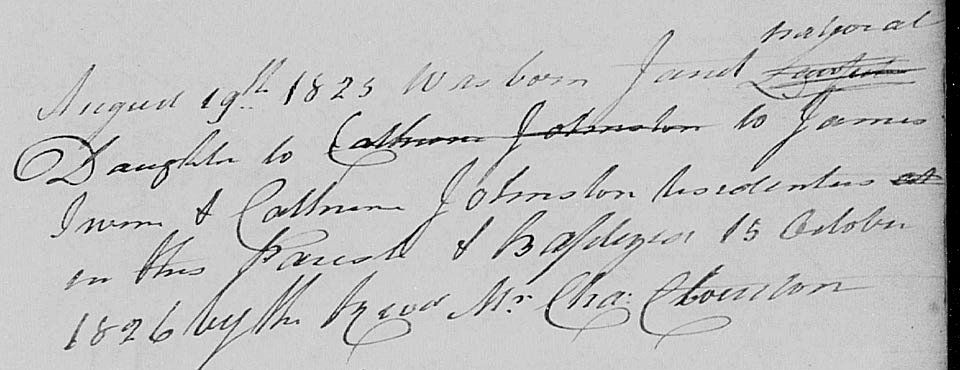 natural
August 19th 1825 Was born Janet Lawful
Daughter to Cathrine Johnston to James
Irvine & Cathrine Johnston residenters at
in this Parish & Baptized 15 October
1826 by the Revd Mr. Cha: